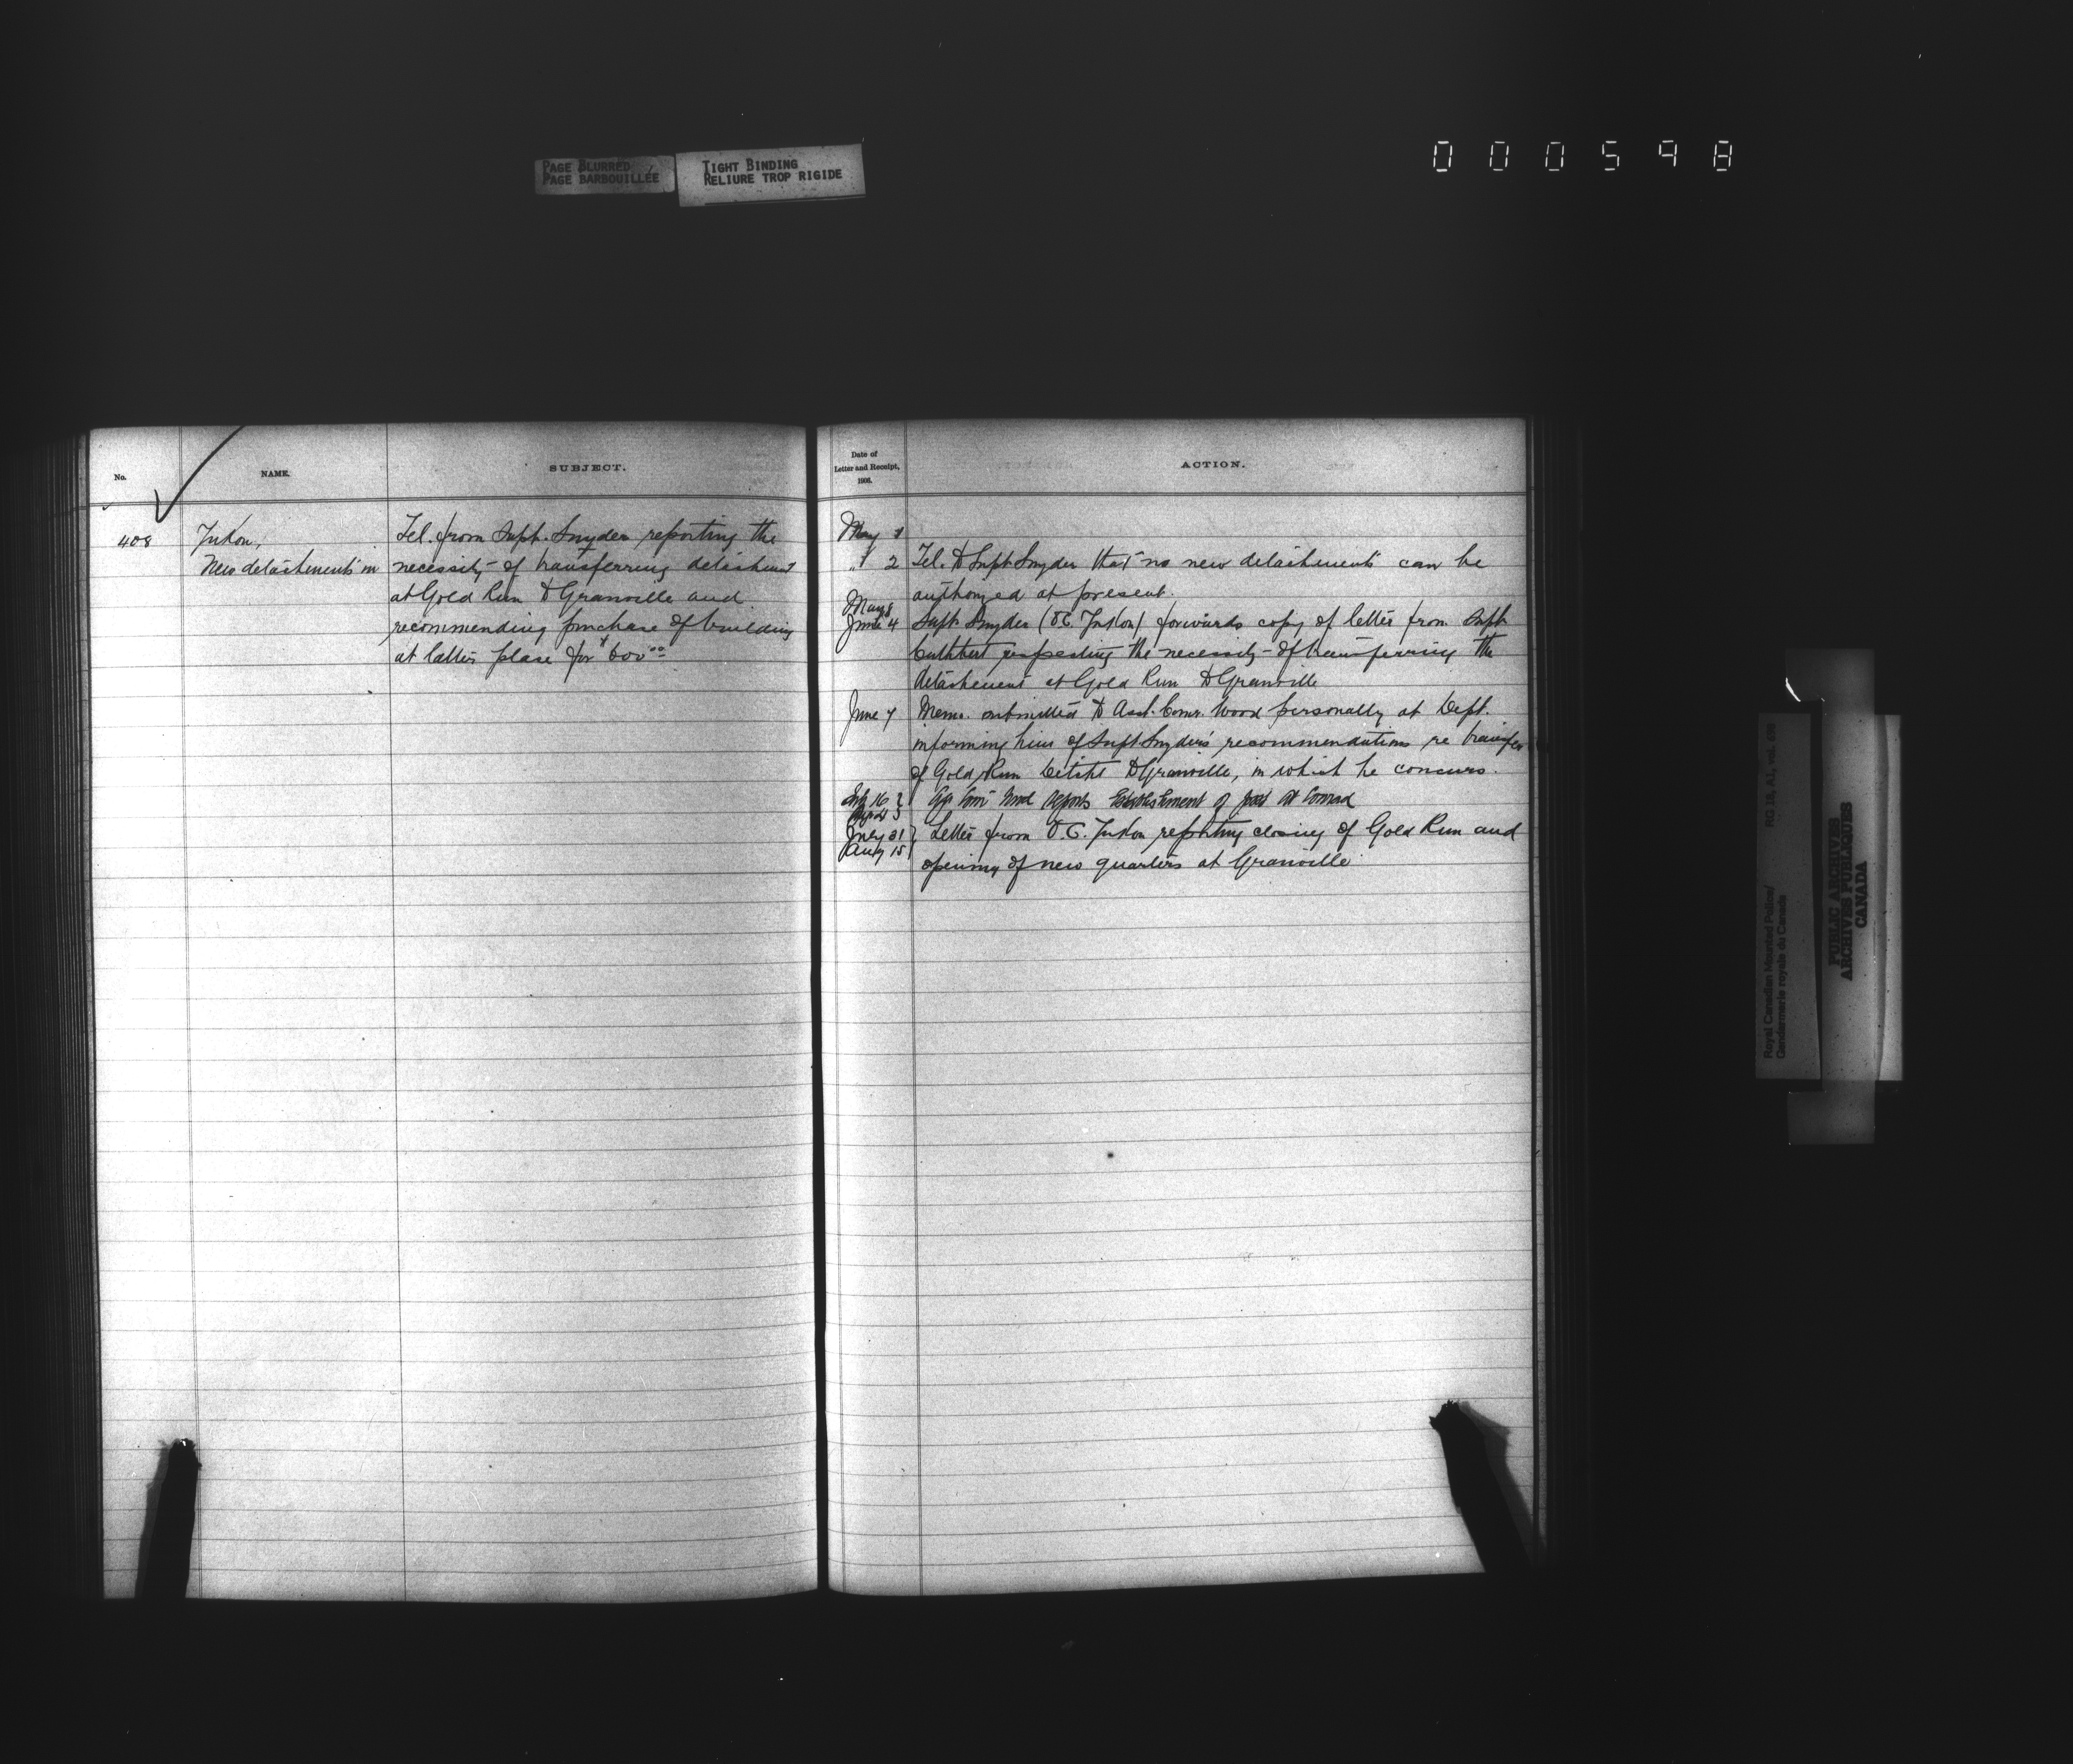 PAGE BLURRED
PAGE BARBOUILLÉE
TIGHT BINDING
RELIURE TROP RIGIDE
000598
No.
NAME.
SUBJECT.
408
Yukon,
New detachments in
Tel. from Supt. Snyder reporting the
necessity of transferring detachment
at Gold Run to Granville and
recommending purchase of building
at latter place for $600.00
Date of
Letter and Receipt,
1906.
ACTION.
May 1
" 2 Tel. to Supt Snyder that no new detachments can be
authorized at present.
May 8
June 4 Supt. Snyder (O.C. Yukon) forwards copy of letter from Supt
Cuthbert respecting the necessity of transferring the
detachment at Gold Run to Granville
June 7 Memo. submitted to Asst. Comr. Wood personally at Dept.
informing him of Supt Snyder's recommendations re transfer
of Gold Run Detcht to Granville, in which he concurs.
16 Wood reports establishment of post at Conrad
July 21
Aug 15 Letter from O.C. Yukon reporting closing of Gold Run and
opening of new quarters at Granville
Royal Canadian Mounted Police/
Gendarmerie royale du Canada
RG 18, A1, vol.
PUBLIC ARCHIVES
ARCHIVES PUBLIQUES
CANADA